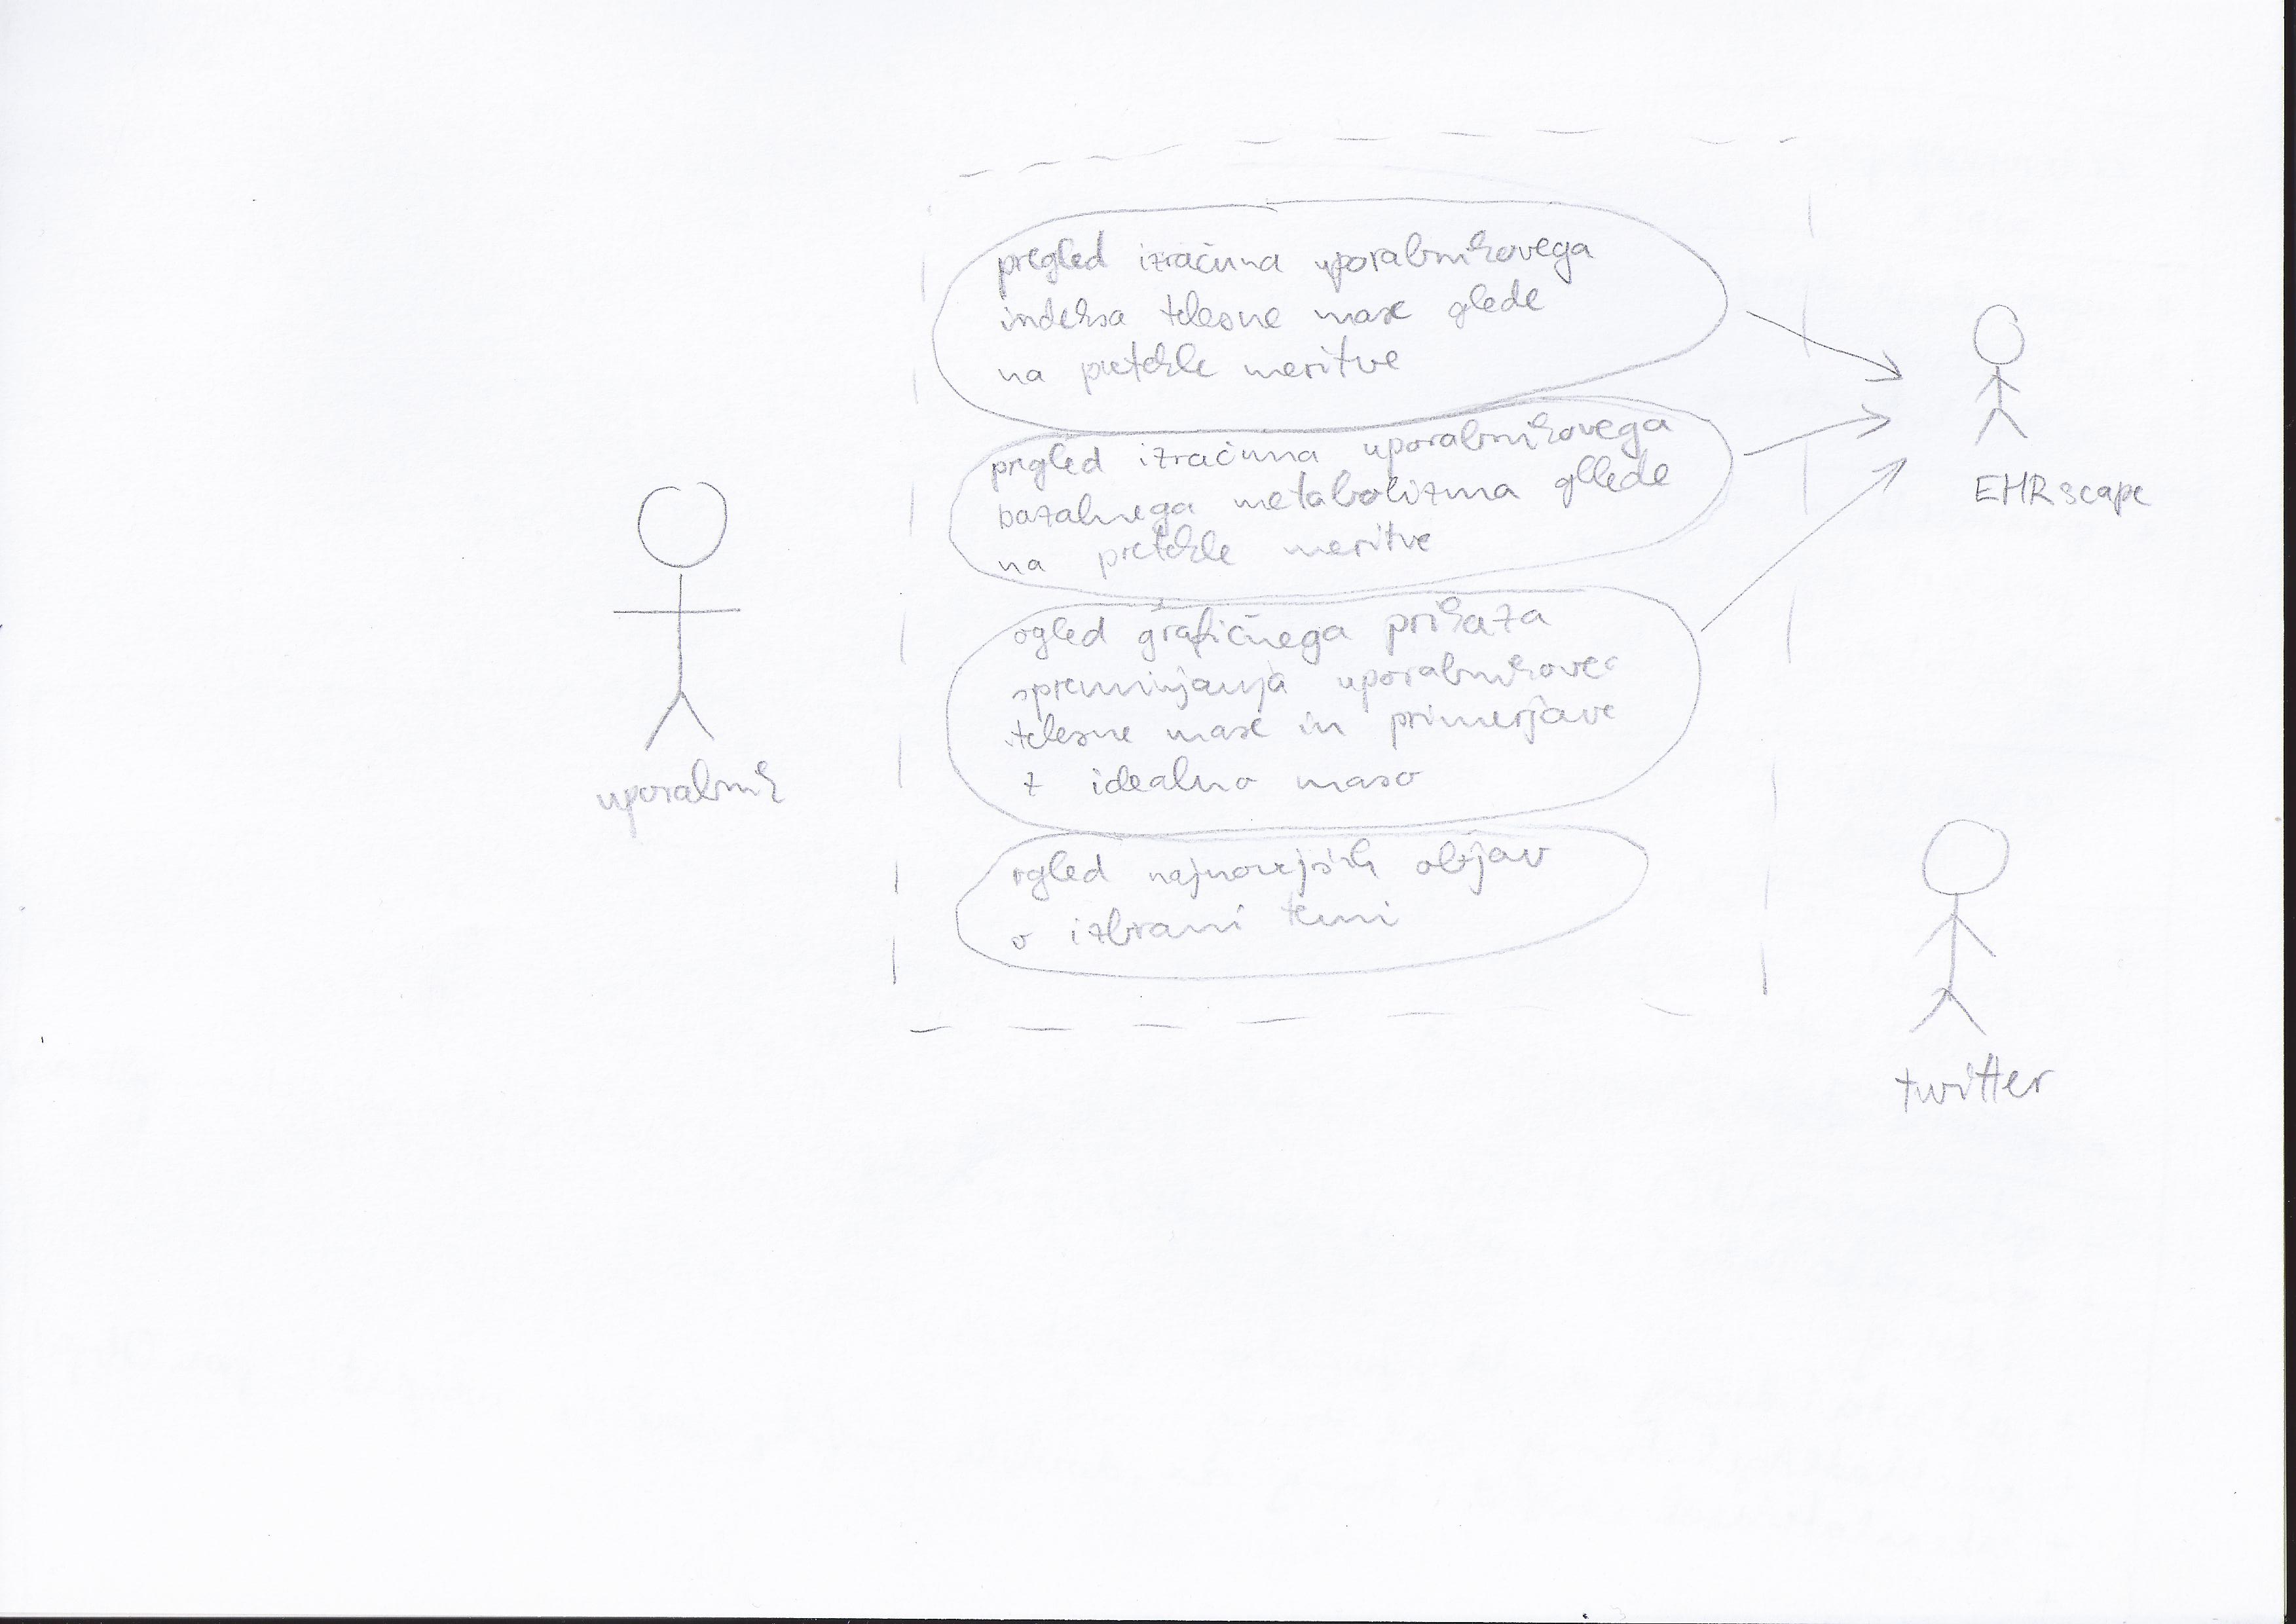 pregled izračuna uporabnikovega
indeksa telesne mase glede
na pretekle meritve
pregled izračuna uporabnikovega
bazalnega metabolizma gllede
na pretekle meritve
ogled grafičnega prikaza
spreminjanja uporabnikove
telesne mase in primerjave
z idealno maso
ogled najnovejših objav
o izbrani temi
uporabnik
EHRscape
twitter